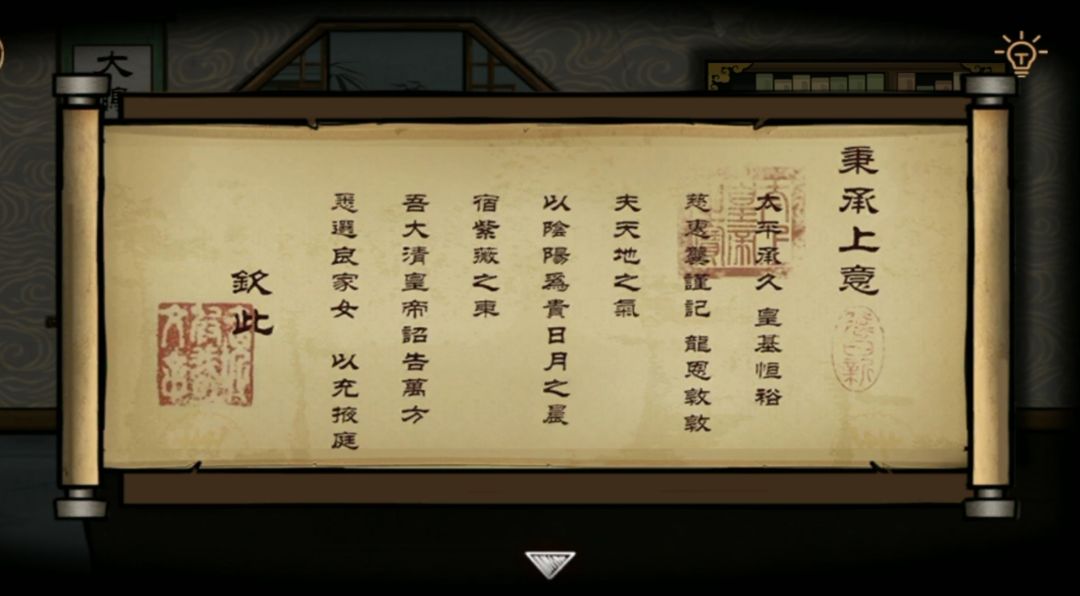 秉承上意
太平承久 皇基恒裕
慈惠冀謹記 龍恩敦敦
夫天地之氣
以陰陽爲貴日月之星
宿紫薇之東
吾大清皇帝詔告萬方
慝選良家女 以充掖庭
欽此
大